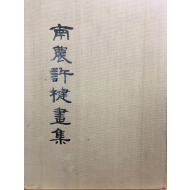 南農許楗畫集